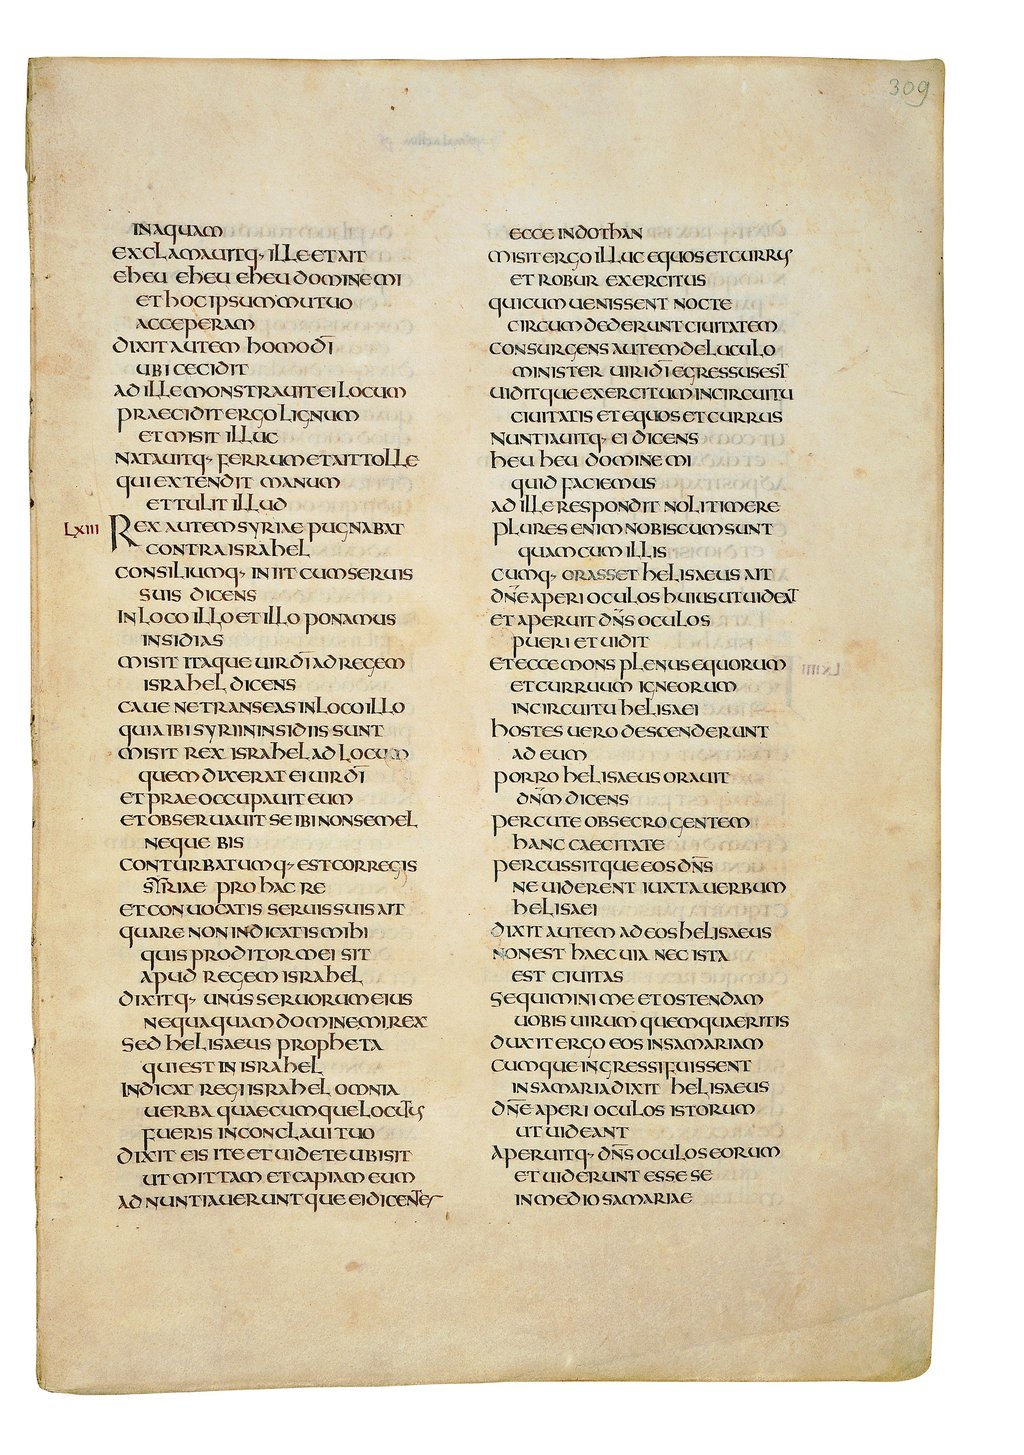 309
IN AQUAM
EXCLAMAUITQ· ILLE ET AIT
EHEU EHEU EHEU DOMINE MI
ET HOC IPSUM MUTUO
ACCEPERAM
DIXIT AUTEM HOMO DĪ
UBI CECIDIT
AD ILLE MONSTRAUIT EI LOCUM
PRAECIDIT ERGO LIGNUM
ET MISIT ILLUC
NATAUITQ· FERRUM ET AIT TOLLE
QUI EXTENDIT MANUM
ET TULIT ILLUD
LXIII REX AUTEM SYRIAE PUGNABAT
CONTRA ISRAHEL
CONSILIUMQ· INIIT CUM SERUIS
SUIS DICENS
IN LOCO ILLO ET ILLO PONAMUS
INSIDIAS
MISIT ITAQUE UIR DĪ AD REGEM
ISRAHEL DICENS
CAUE NE TRANSEAS IN LOCO ILLO
QUIA IBI SYRI IN INSIDIIS SUNT
MISIT REX ISRAHEL AD LOCUM
QUEM DIXERAT EI UIR DĪ
ET PRAEOCCUPAUIT EUM
ET OBSERUAUIT SE IBI NON SEMEL
NEQUE BIS
CONTURBATUMQ· EST COR REGIS
SYRIAE PRO HAC RE
ET CONUOCATIS SERUIS SUIS AIT
QUARE NON INDICATIS MIHI
QUIS PRODITOR MEI SIT
APUD REGEM ISRAHEL
DIXITQ· UNUS SERUORUM EIUS
NEQUAQUAM DOMINE MI REX
SED HELISAEUS PROPHETA
QUI EST IN ISRAHEL
INDICAT REGI ISRAHEL OMNIA
UERBA QUAECUMQUE LOCUTUS
FUERIS IN CONCLAUI TUO
DIXIT EIS ITE ET UIDETE UBI SIT
UT MITTAM ET CAPIAM EUM
ADNUNTIAUERUNTQUE EI DICENTES
ECCE IN DOTHAN
MISIT ERGO ILLUC EQUOS ET CURRUS
ET ROBUR EXERCITUS
QUI CUM UENISSENT NOCTE
CIRCUMDEDERUNT CIUITATEM
CONSURGENS AUTEM DELUCULO
MINISTER UIRI DĪ EGRESSUS EST
UIDITQUE EXERCITUM IN CIRCUITU
CIUITATIS ET EQUOS ET CURRUS
NUNTIAUITQ· EI DICENS
HEU HEU DOMINE MI
QUID FACIEMUS
AD ILLE RESPONDIT NOLI TIMERE
PLURES ENIM NOBISCUM SUNT
QUAM CUM ILLIS
CUMQ· ORASSET HELISAEUS AIT
DN̄E APERI OCULOS HUIUS UT UIDEAT
ET APERUIT DN̄S OCULOS
PUERI ET UIDIT
ET ECCE MONS PLENUS EQUORUM
ET CURRUUM IGNEORUM
IN CIRCUITU HELISAEI
HOSTES UERO DESCENDERUNT
AD EUM
PORRO HELISAEUS ORAUIT
DN̄M DICENS
PERCUTE OBSECRO GENTEM
HANC CAECITATE
PERCUSSITQUE EOS DN̄S
NE UIDERENT IUXTA UERBUM
HELISAEI
DIXIT AUTEM AD EOS HELISAEUS
NON EST HAEC UIA NEC ISTA
EST CIUITAS
SEQUIMINI ME ET OSTENDAM
UOBIS UIRUM QUEM QUAERITIS
DUXIT ERGO EOS IN SAMARIAM
CUMQUE INGRESSI FUISSENT
IN SAMARIA DIXIT HELISAEUS
DN̄E APERI OCULOS ISTORUM
UT UIDEANT
APERUITQ· DN̄S OCULOS EORUM
ET UIDERUNT ESSE SE
IN MEDIO SAMARIAE